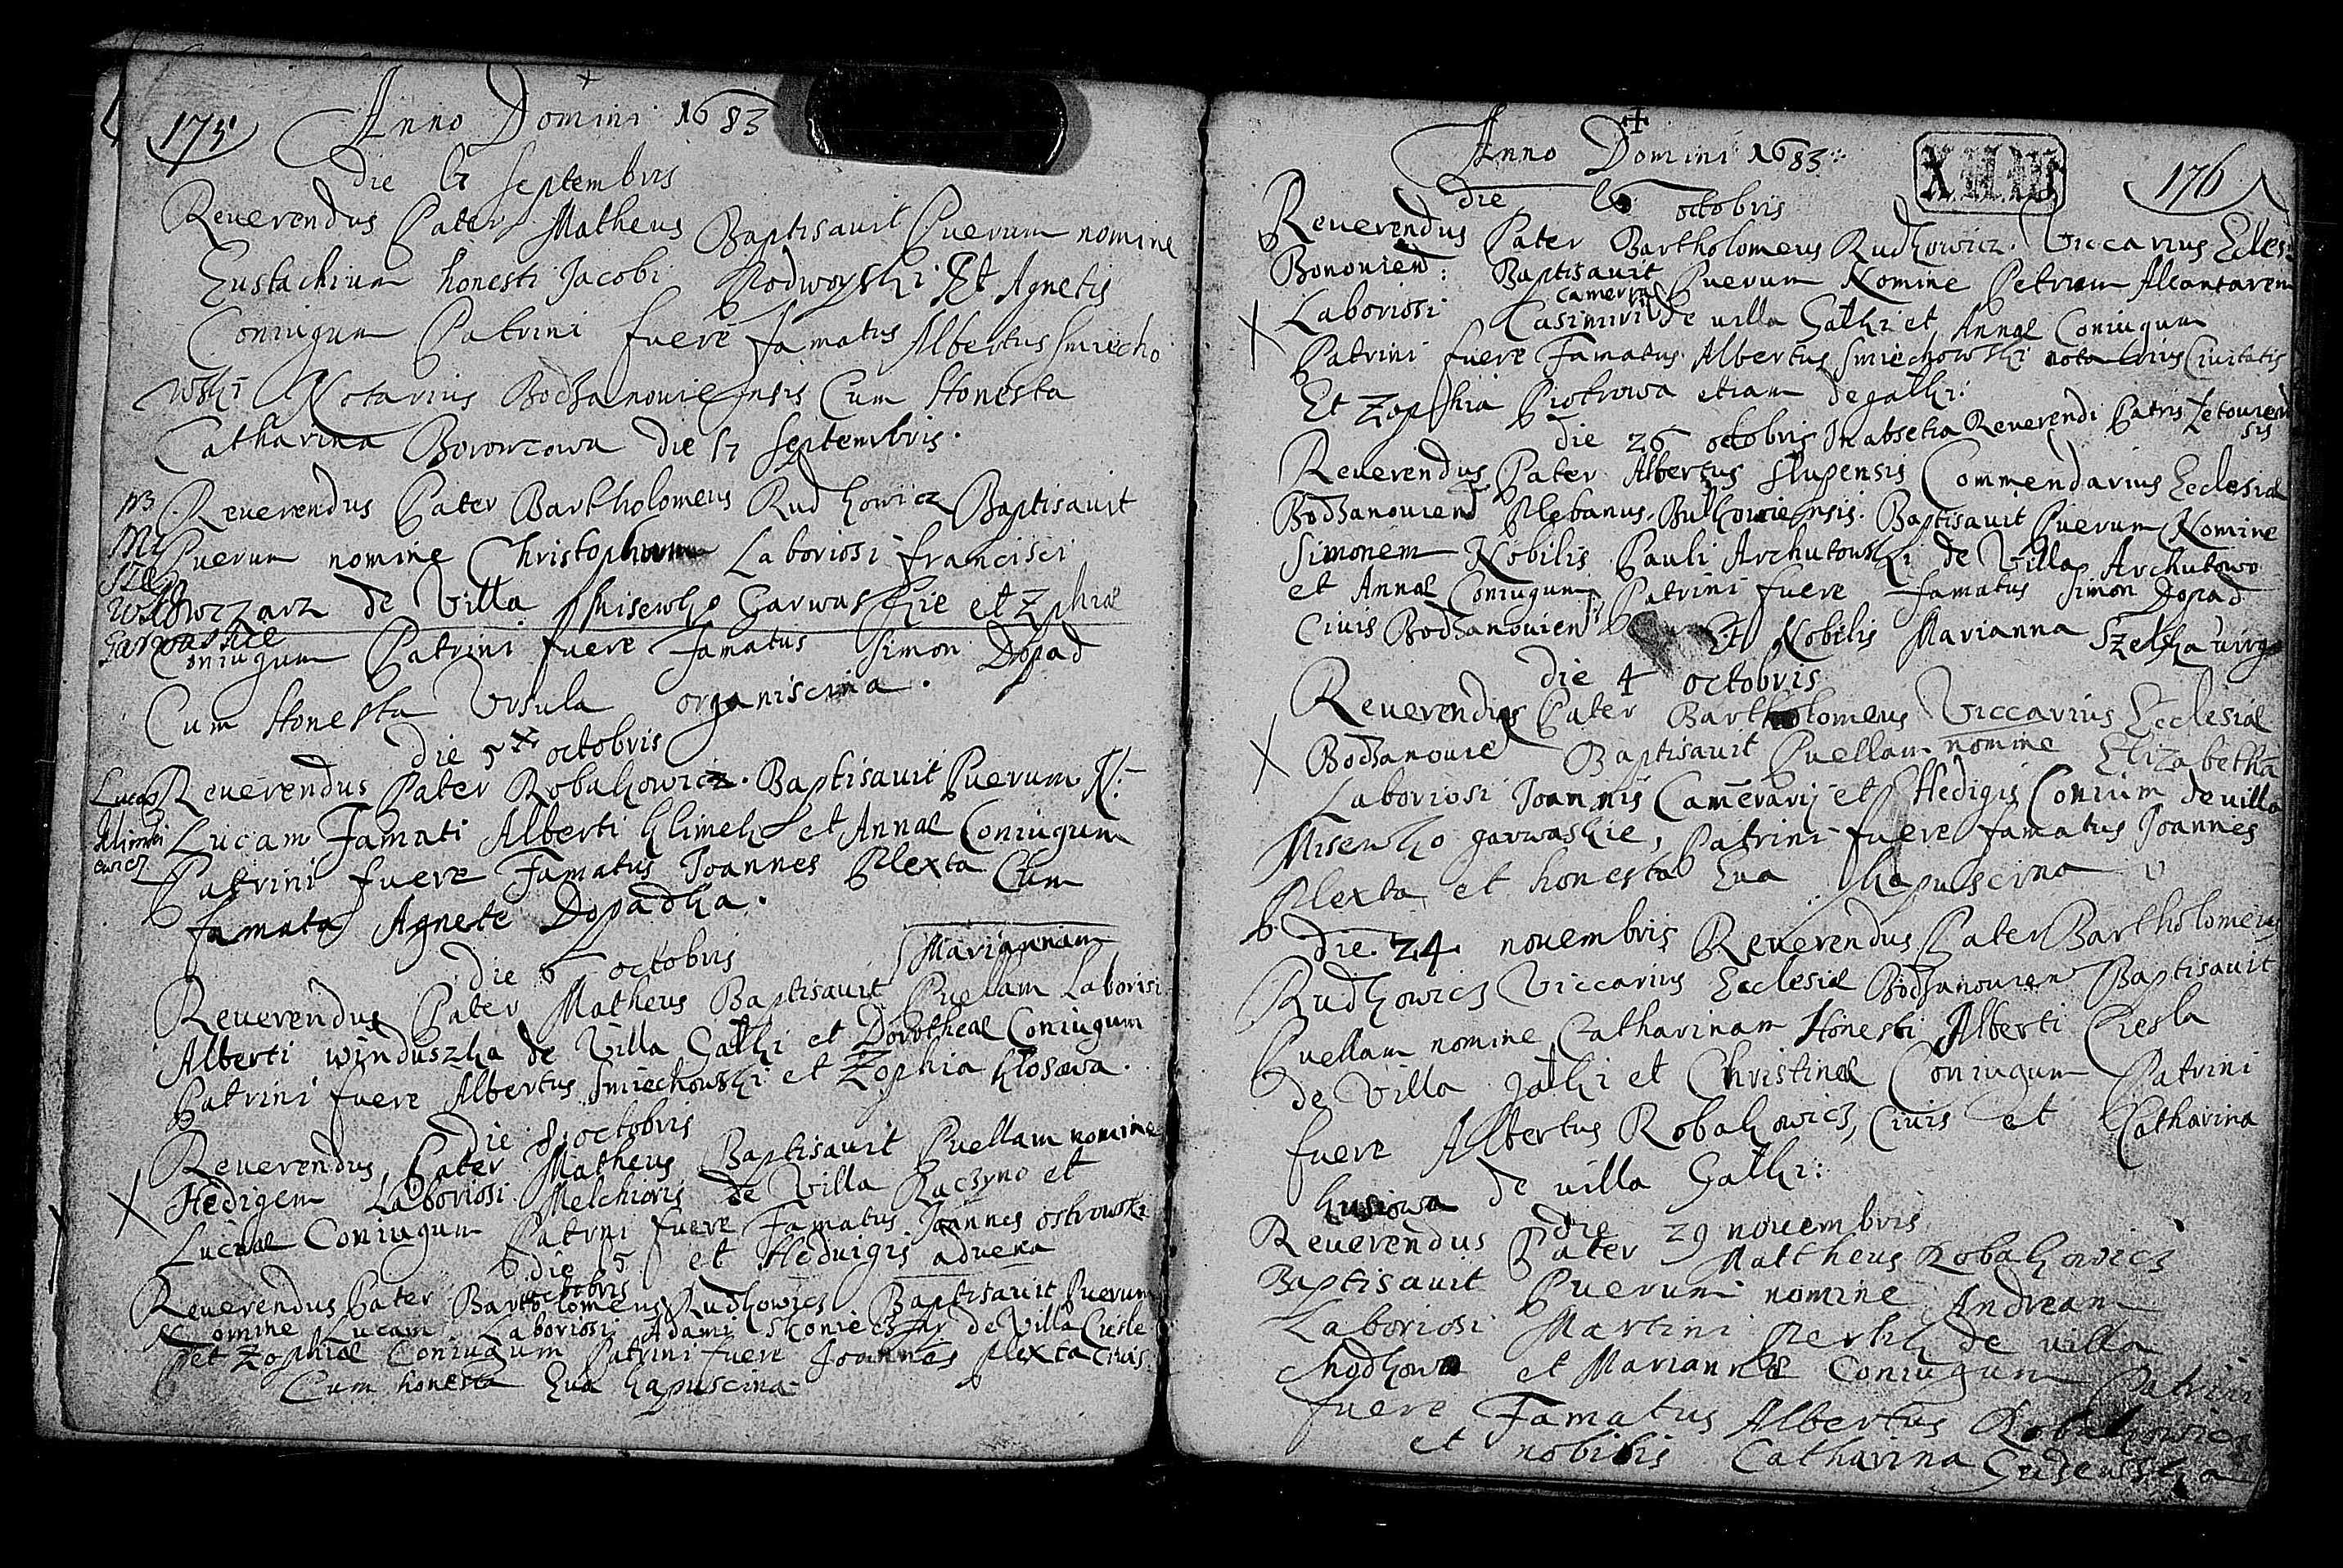 175
Anno Domini 1683
die 17 Septembris
Reuerendus Pater Matheus Baptisauit Puerum nomine
Eustachium honesti Jacobi Podwoyski Et Agnetis
Coniugum Patrini fuere famatus Albertus Smiecho
wski Notarius Bodzanouiensis Cum Honesta
Catharina Borowcowa die 17 Septembris.
Reuerendus Pater Bartholomeus Rudkowicz Baptisauit
Puerum nomine Christophorum Laboriosi francisci
Owczarz de Villa Misewko Garwaskie et Zophiae
Garwaskie
Coniugum Patrini fuere famatus Simon Dopad
Cum Honesta Vrsula organiscina.
die 5 octobris
Lucas
Reuerendus Pater Robakowicz. Baptisauit Puerum N:
Klimki
ewicz
Lucam Famati Alberti Klimek et Annae Coniugum
Patrini fuere Famatus Joannes Plexta Cum
famata Agnete Dopadka.
die 6 octobris
Mariannam
Reuerendus Pater Matheus Baptisauit Puellam Laborisi
Alberti winduszka de Villa Gatki et Dorotheae Coniugum
Patrini fuere Albertus Smiechowski et Zophia Klosowa.
die 8 octobris
Reuerendus Pater Matheus Baptisauit Puellam nomine
Hedigem Laboriosi Melchioris de Villa Raczyno et
Luciae Coniugum Patrni fuere Famatus Joannes ostrowski
et Heduigis aduena
die 15
octobris
Reuerendus Pater Bartolomeus Rudkowicz Baptisauit Puerum
Nomine Lucam Laboriosi Adami Skonieczny de Villa Ciesle
et Zophiae Coniugum Patrini fuere Joannes Plexta Ciuis
Cum honesta Eua Kapuscina
176
Anno Domini 1683
die 6 octobris
Reuerendus Pater Bartholomeus Rudkowicz. Viccarius Eccles:
Bononien: Baptisauit Puerum Nomine Petrum Alcantarem
camerarii
Laboriosi Casimiri de uilla Gatki et Annae Coniugum
Patrini fuere Famatus Albertus Smiechowski notarius Ciuitatis
Et Zophia Piotrowa etiam de gatki:
die 26 octobris In absetia Reuerendi Patris
sis
Reuerendus Pater Albertus Slupensis Commendarius Ecclesiae
Bodzanouien Plebanus Bulkowiensis. Baptisauit Puerum Nomine
Simonem Nobilis Pauli Archutowski de Villa Archutowo
et Annae Coniugum Patrini fuere famatus Simon Dopad
Ciuis Bodzanouien Et Nobilis Marianna Szelska uirgo
die 4 octobris
Reuerendus Pater Bartholomeus Viccarius Ecclesiae
Bodzanouie Baptisauit Puellam nomine Elizabetha
Laboriosi Joannis Camerarij et Hedigis Conium de uilla
Misewko garwaskie, Patrini fuere famatus Joannes
Plexta et honesta Eua Kapuscina
die 24 nouembris Reuerendus Pater Bartholomeus
Rudkowicz Viccarius Ecclesiae Bodzanouien Baptisauit
Puellam nomine Catharinam Honesti Alberti Ciesla
de Villa gatki et Christinae Coniugum Patrini
fuere Albertus Robakowicz, Ciuis et Catharina
Kusiowa de uilla Gatki:
die 29 nouembris
Reuerendus Pater Mattheus Robakowicz
Baptisauit Puerum nomine Andream
Laboriosi Martini Perlik de uilla
Chodkowo et Mariannae Coniugum Patrini
fuere Famatus Albertus Robakowicz
et nobilis Catharina